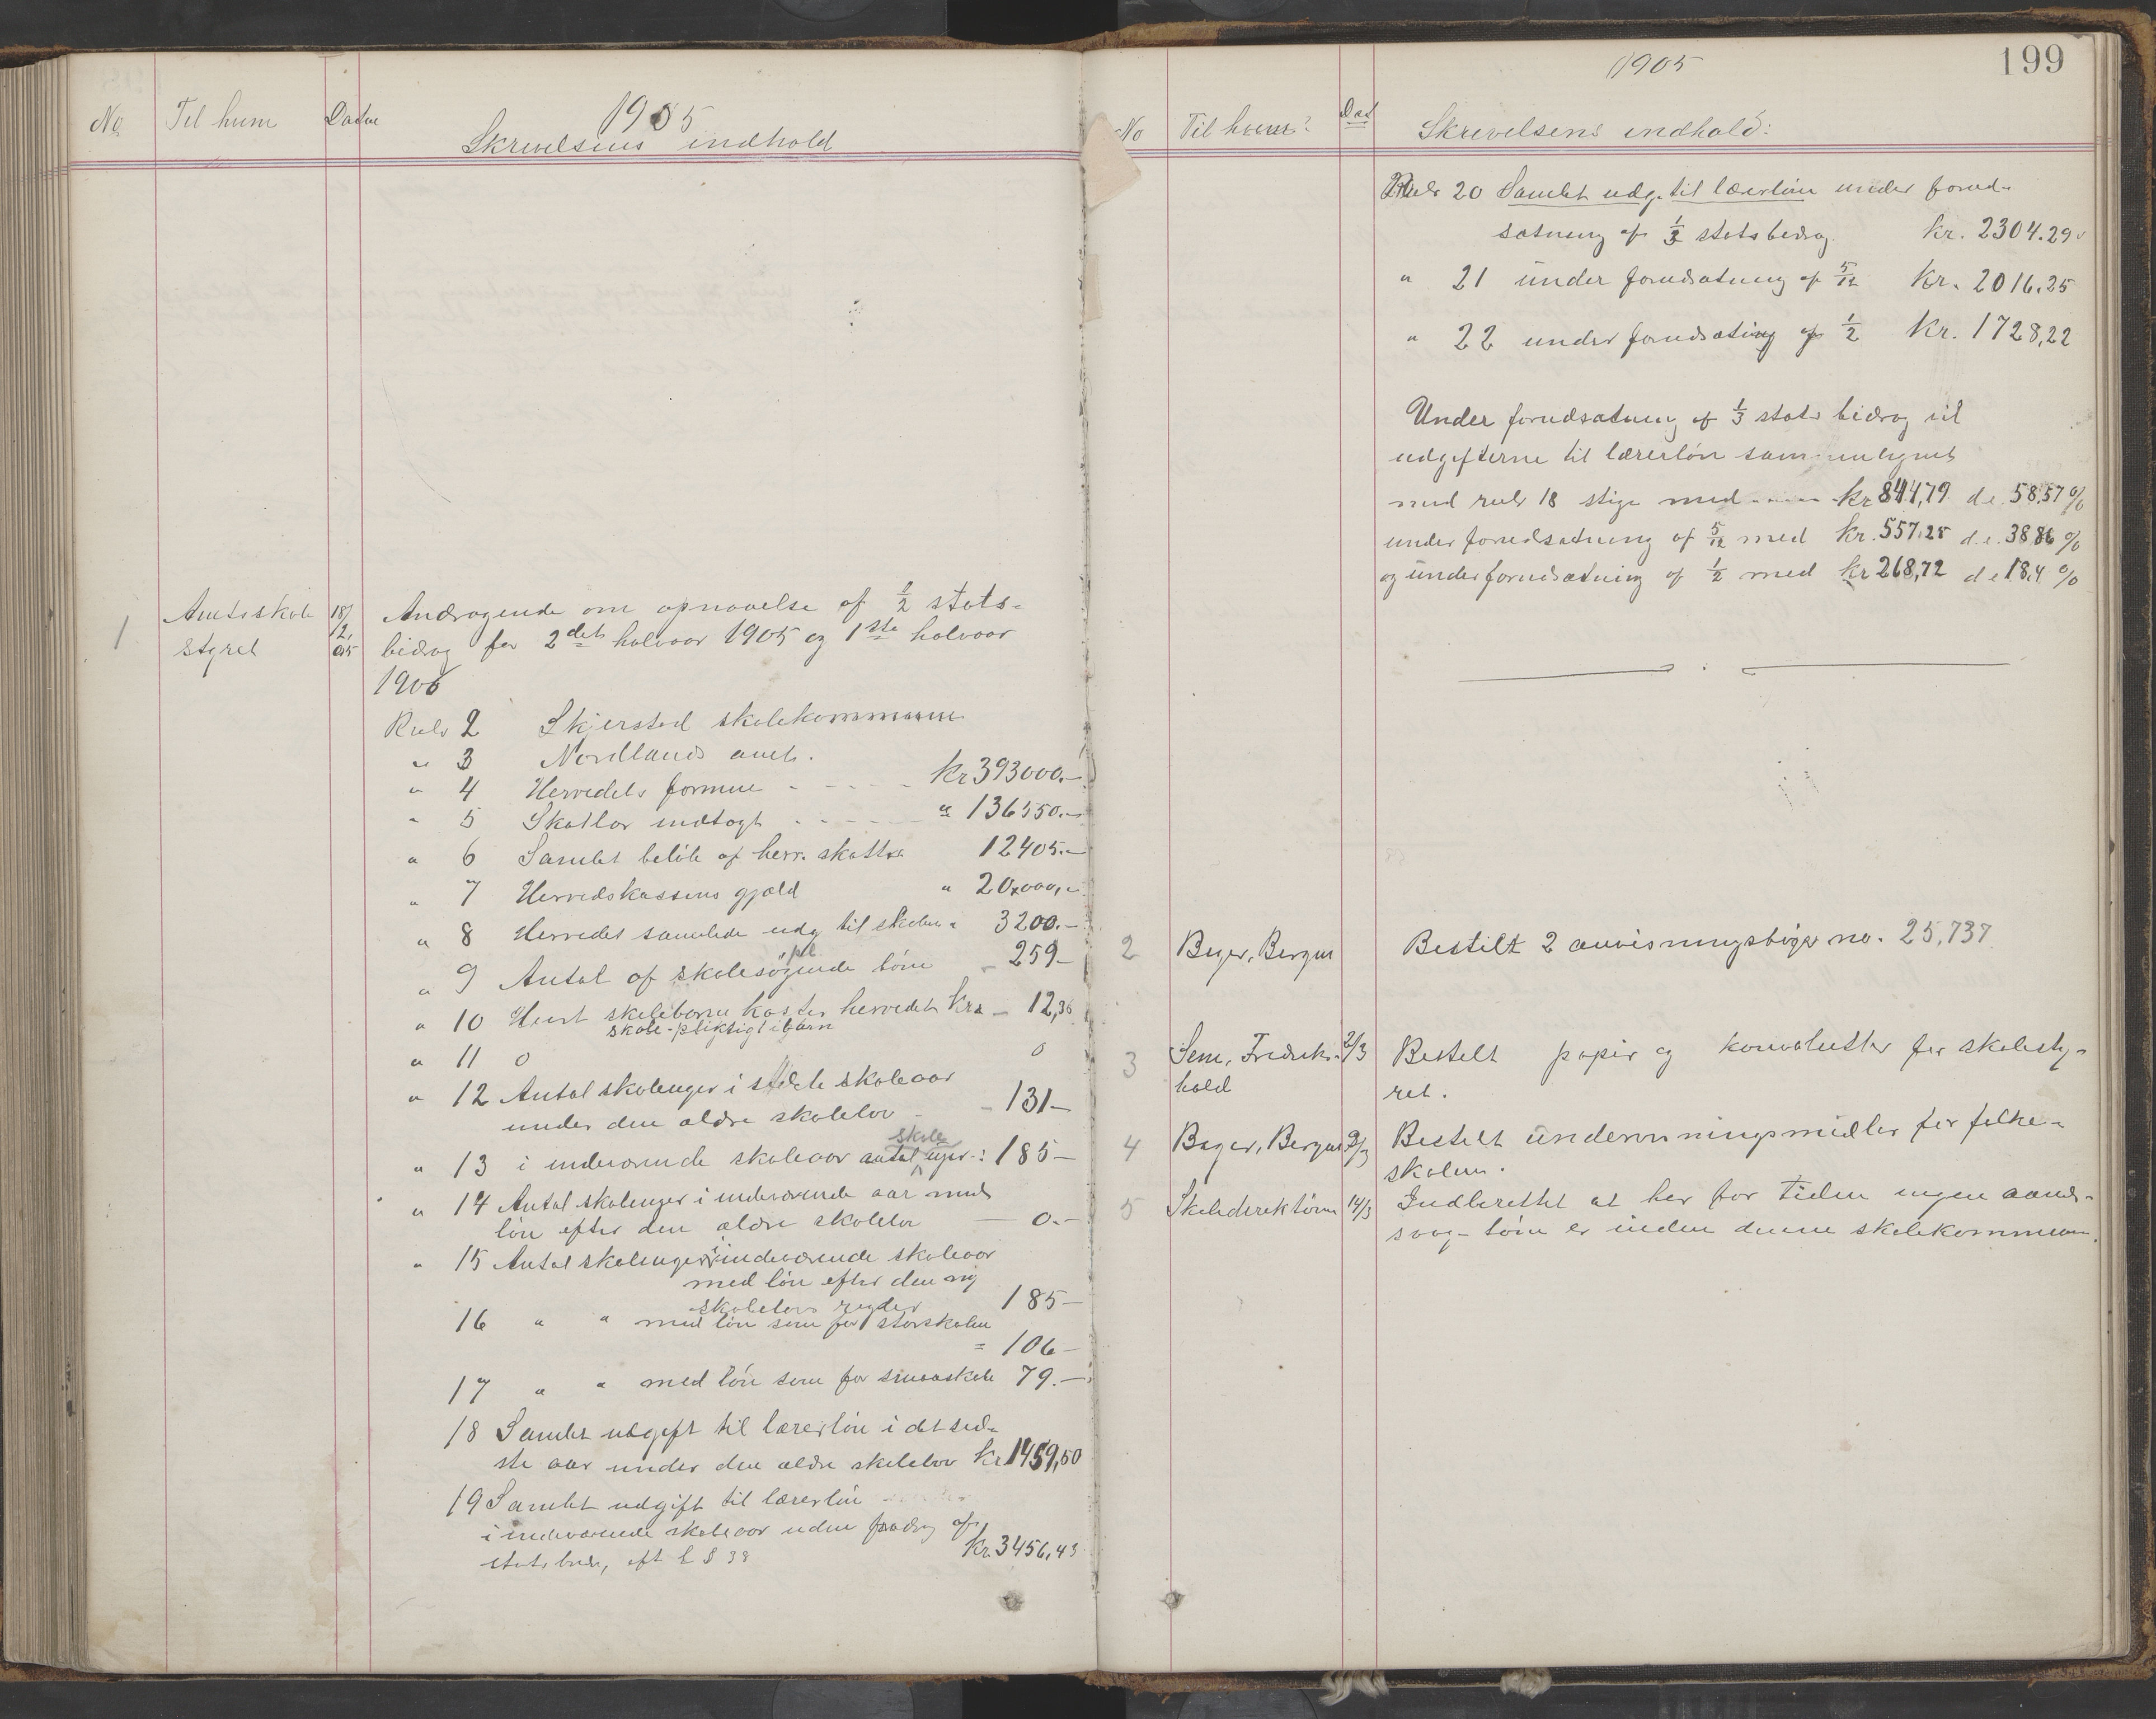 1905
No Til hvem Datum Skrivelsens indhold
1 Amtsskole styret 18/12, 05
Andragende om opnaaelse af 1/2 stats-
bidrag for 2det halvaar 1905 og 1ste halvaar
1906
Rubr 2 Skjerstad skolekommune
" 3 Nordlands amt.
" 4 Herredets formue - - - - - kr 393000.-
" 5 Skatbar indtægt - - - - - " 136550.-
" 6 Samlet beløb af herr. skatter 12405.-
" 7 Herredskassens gjæld " 20,000,-
" 8 Herredet samlede udg til skolen " 3200.-
" 9 Antal af skolesøgende børn - 259-
" 10 Hvert skolebarn koster herredet kr. - 12,36
skole-pliktigt barn
" 11 0 0
" 12 Antal skoleuger i sidste skoleaar
under den ældre skolelov - 131-
" 13 i indeværende skoleaar antal skole uger.: 185-
" 14 Antal skoleuger i indeværende aar med
løn efter den ældre skolelov — 0.-
" 15 Antal skoleuger i indeværende skoleaar
med løn efter den ny
skolelovs regler 185-
16 " " med løn som for storskolen
= 106-
17 " " med løn som for smaaskole 79.-
18 Samlet udgift til lærerløn i det sid-
ste aar under den ældre skolelov kr 1459,50
19 Samlet udgift til lærerløn
i indeværende skoleaar uden fradrag af
statsbidr, eft § 38 kr. 3456,43
1905
199
No Til hvem? Dat Skrivelsens indhold:
Rubr 20 Samlet udg. til lærerløn under forud-
sætning af 1/3 statsbidrag. kr. 2304.29
" 21 under forudsætning af 5/12 Kr. 2016.25
" 22 under forudsætning af 1/2 Kr. 1728,22
Under forudsætning af 1/3 stats bidrag vil
udgifterne til lærerløn sammenlignet
med rubr 18 stige med - - - kr 844,79 d.e. 58.57 %
under forudsætning af 5/12 med kr. 557.25 d.e. 38.86 %
og under forudsætning af 1/2 med kr 268,72 d.e 18,4 %
2 Beyer, Bergen Bestilt 2 anvisningsbøger no. 25,737
3 Sem, Fredriks- 2/3 Bestilt papir og konvolutter for skolesty-
hald ret.
4 Beyer, Bergen 9/3 Bestilt undervisningsmidler for folke-
skolen.
5 Skoledirektøren 14/3 Indberettet at her for tiden ingen aand-
svag- børn er inden denne skolekommune.